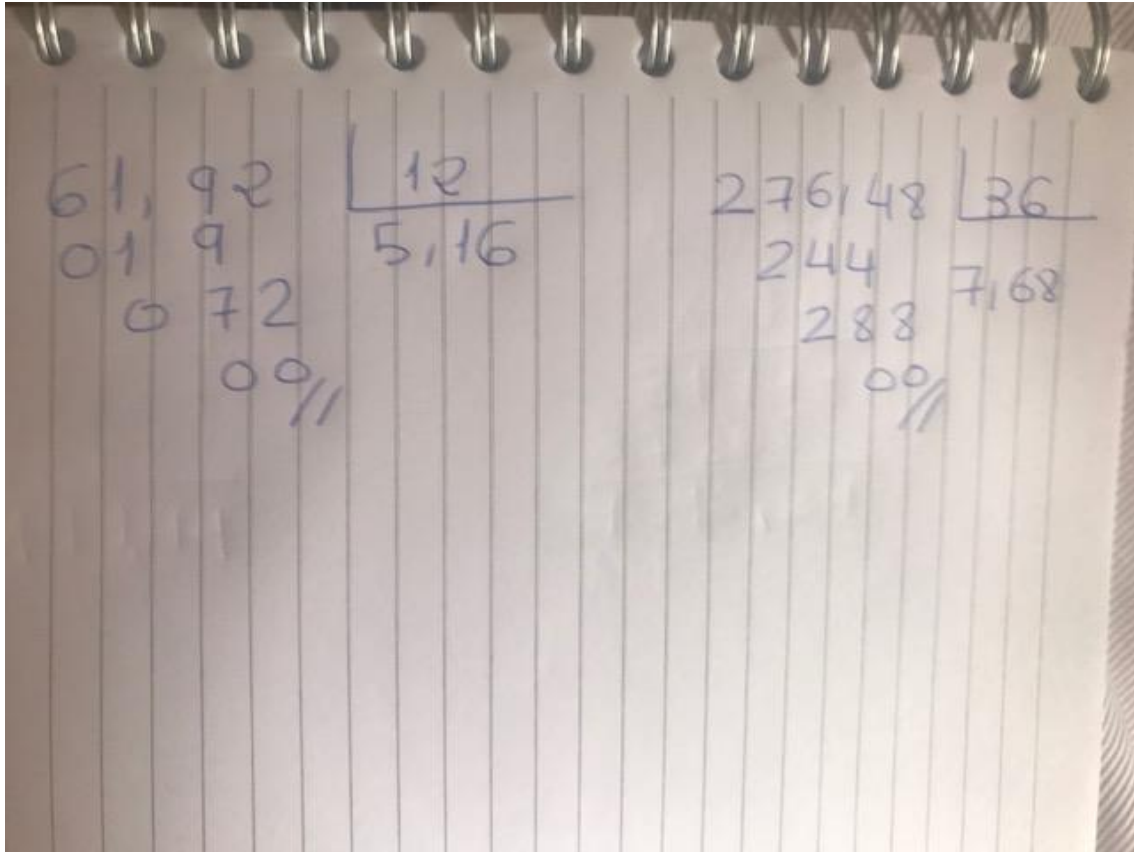 61,92 12
019 5,16
072
00//
276,48 36
244 7,68
288
00//